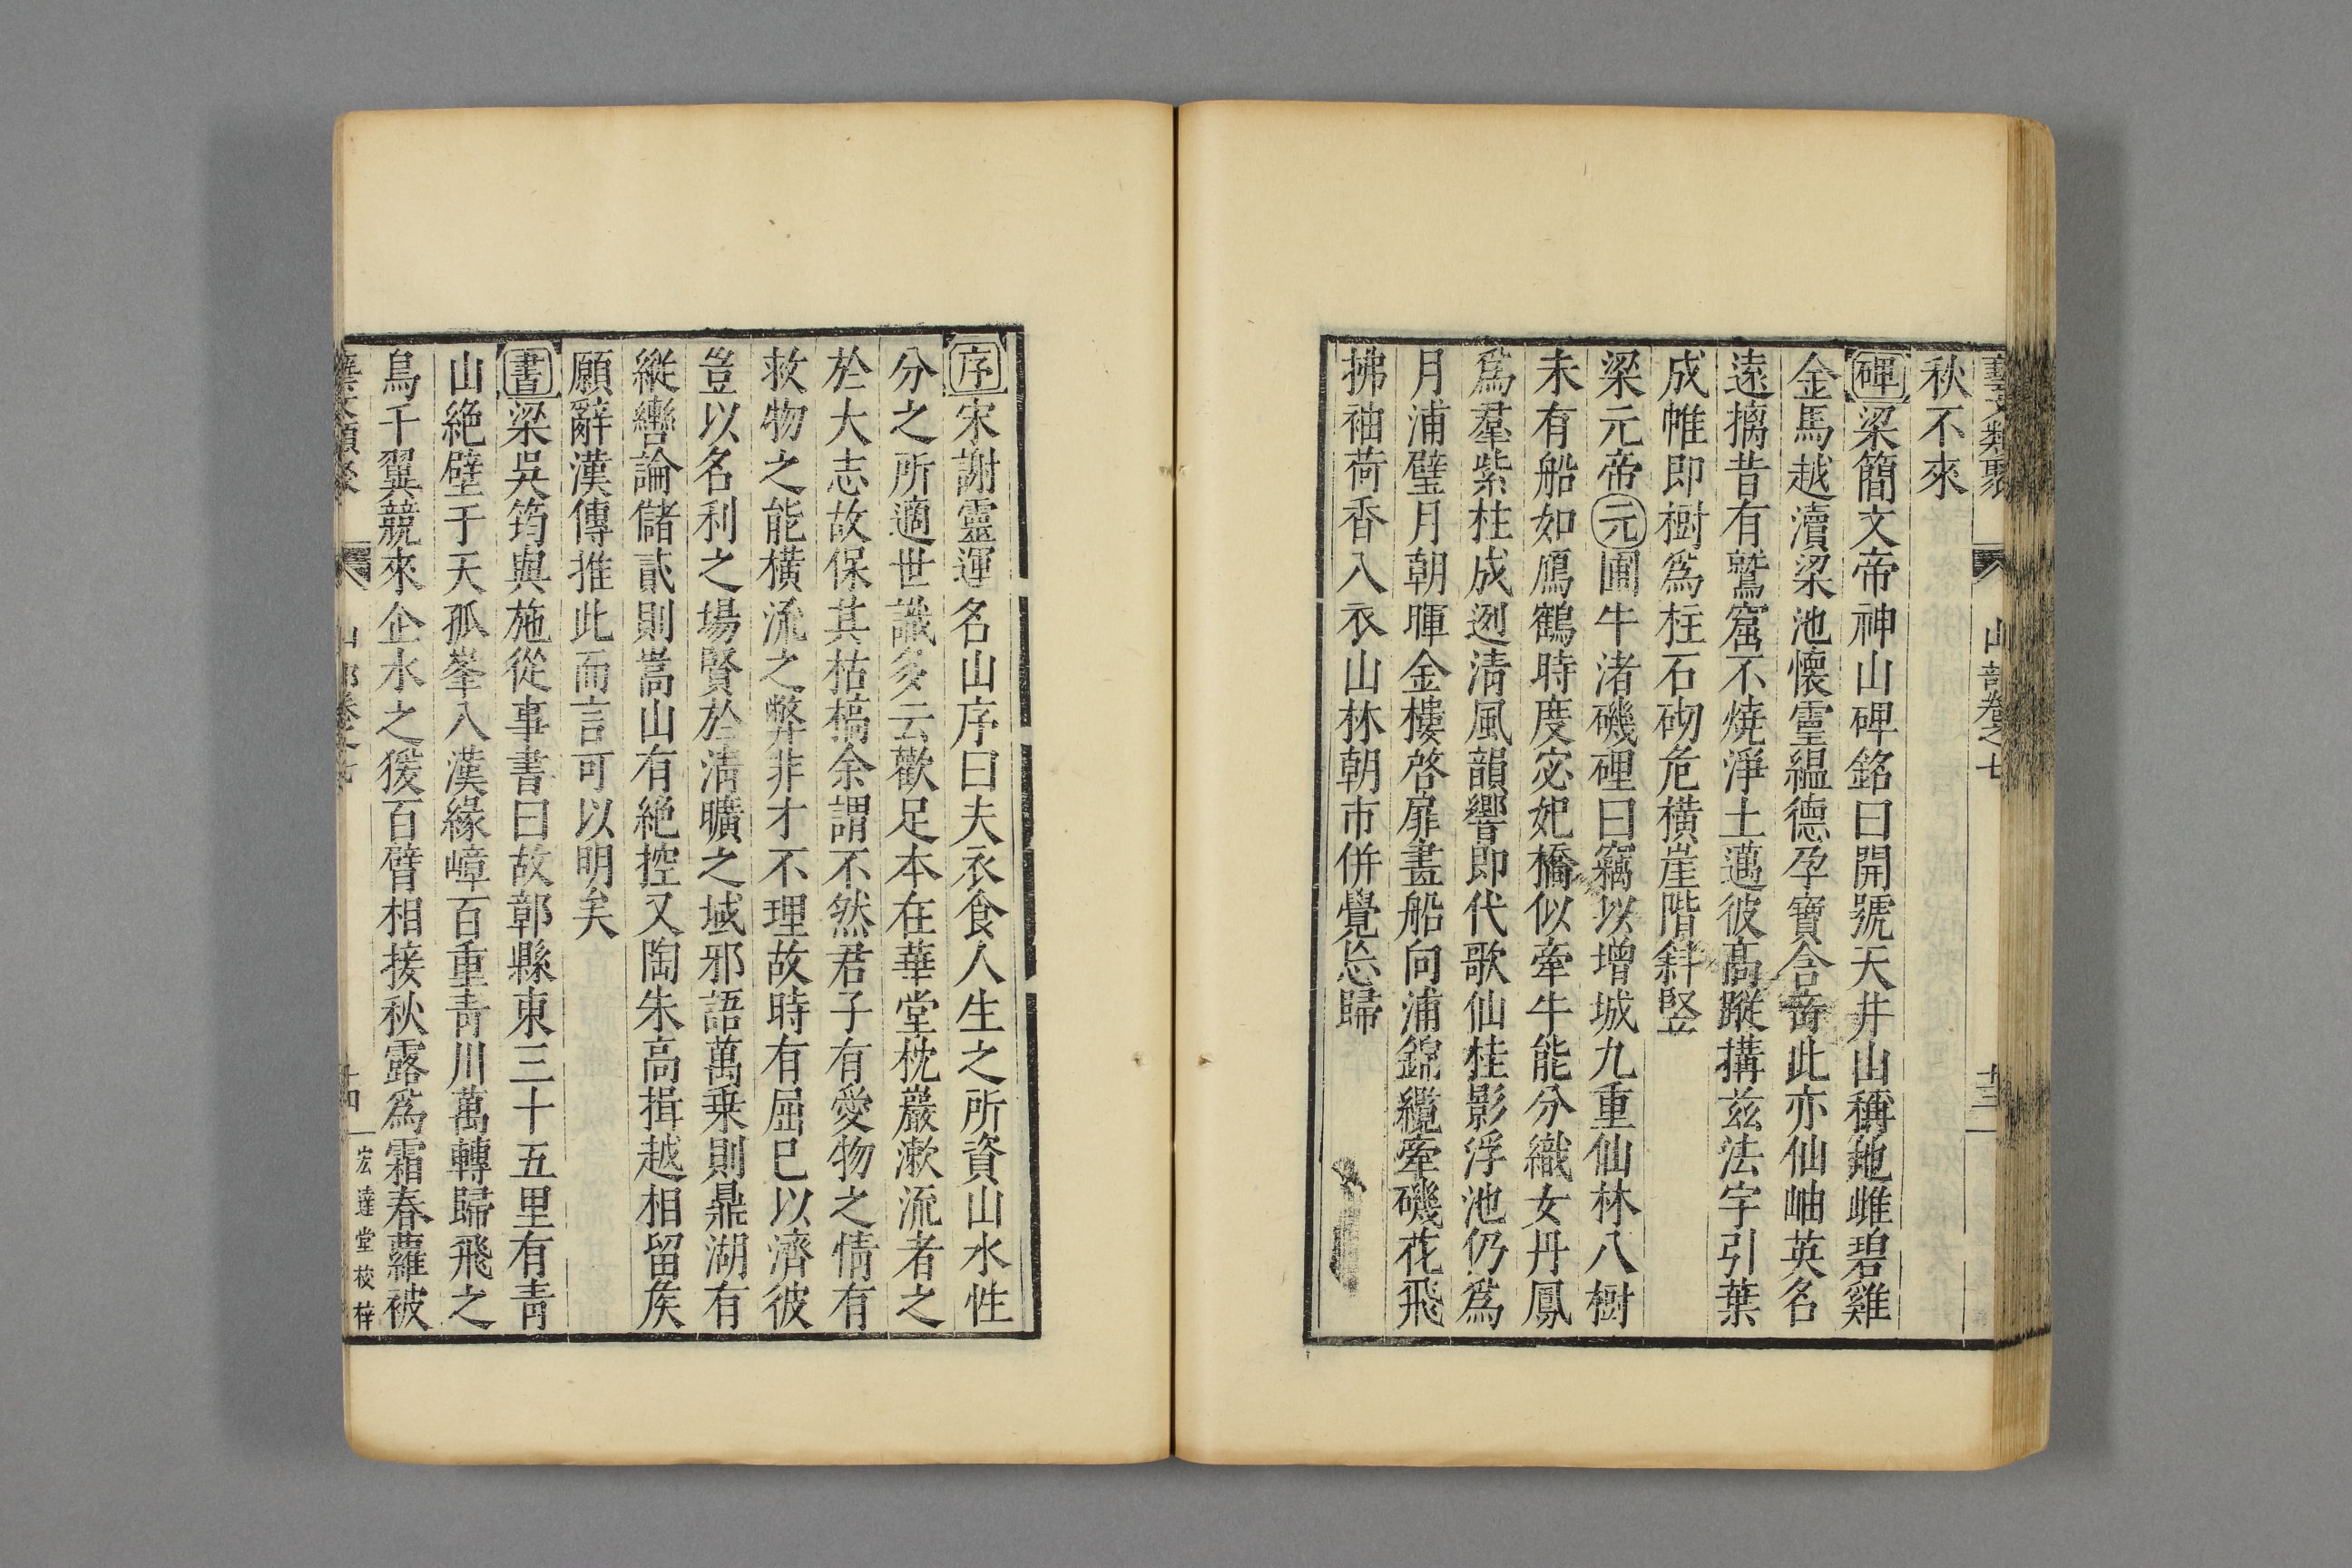 藝文類聚 山部卷之七 十三
秋不來
碑梁簡文帝神山碑銘曰開號天井山稱地雌碧雞
金馬越瀆梁池懷靈緼德孕寶含奇此亦仙岫英名
遠摛昔有鷲窟不燒淨土邁彼高蹤搆茲法宇引葉
成帷即樹爲柱石砌危橫崖階斜竪
梁元帝元圃牛渚磯碑曰竊以增城九重仙林八樹
未有船如鴈鶴時度宓妃橋似牽牛能分織女丹鳳
爲羣紫柱成迾清風韻響即代歌仙桂影浮池仍爲
月浦璧月朝暉金樓啓扉畫船向浦錦纜牽磯花飛
拂袖荷香入衣山林朝市併覺忘歸
序宋謝靈運名山序曰夫衣食人生之所資山水性
分之所適世識多云歡足本在華堂枕巖漱流者之
於大志故保其枯槁余謂不然君子有愛物之情有
救物之能橫流之弊非才不理故時有屈已以濟彼
豈以名利之場賢於清曠之域邪語萬乗則鼎湖有
縱轡論儲貳則嵩山有絶控又陶朱高揖越相留矦
願辭漢傳推此而言可以明矣
書梁吳筠與施從事書曰故鄣縣東三十五里有青
山絶壁于天孤峯入漢緣嶂百重青川萬轉歸飛之
鳥千翼競來企水之猨百臂相接秋露爲霜春蘿被
藝文類聚 山部卷之七 十四 宏達堂校梓